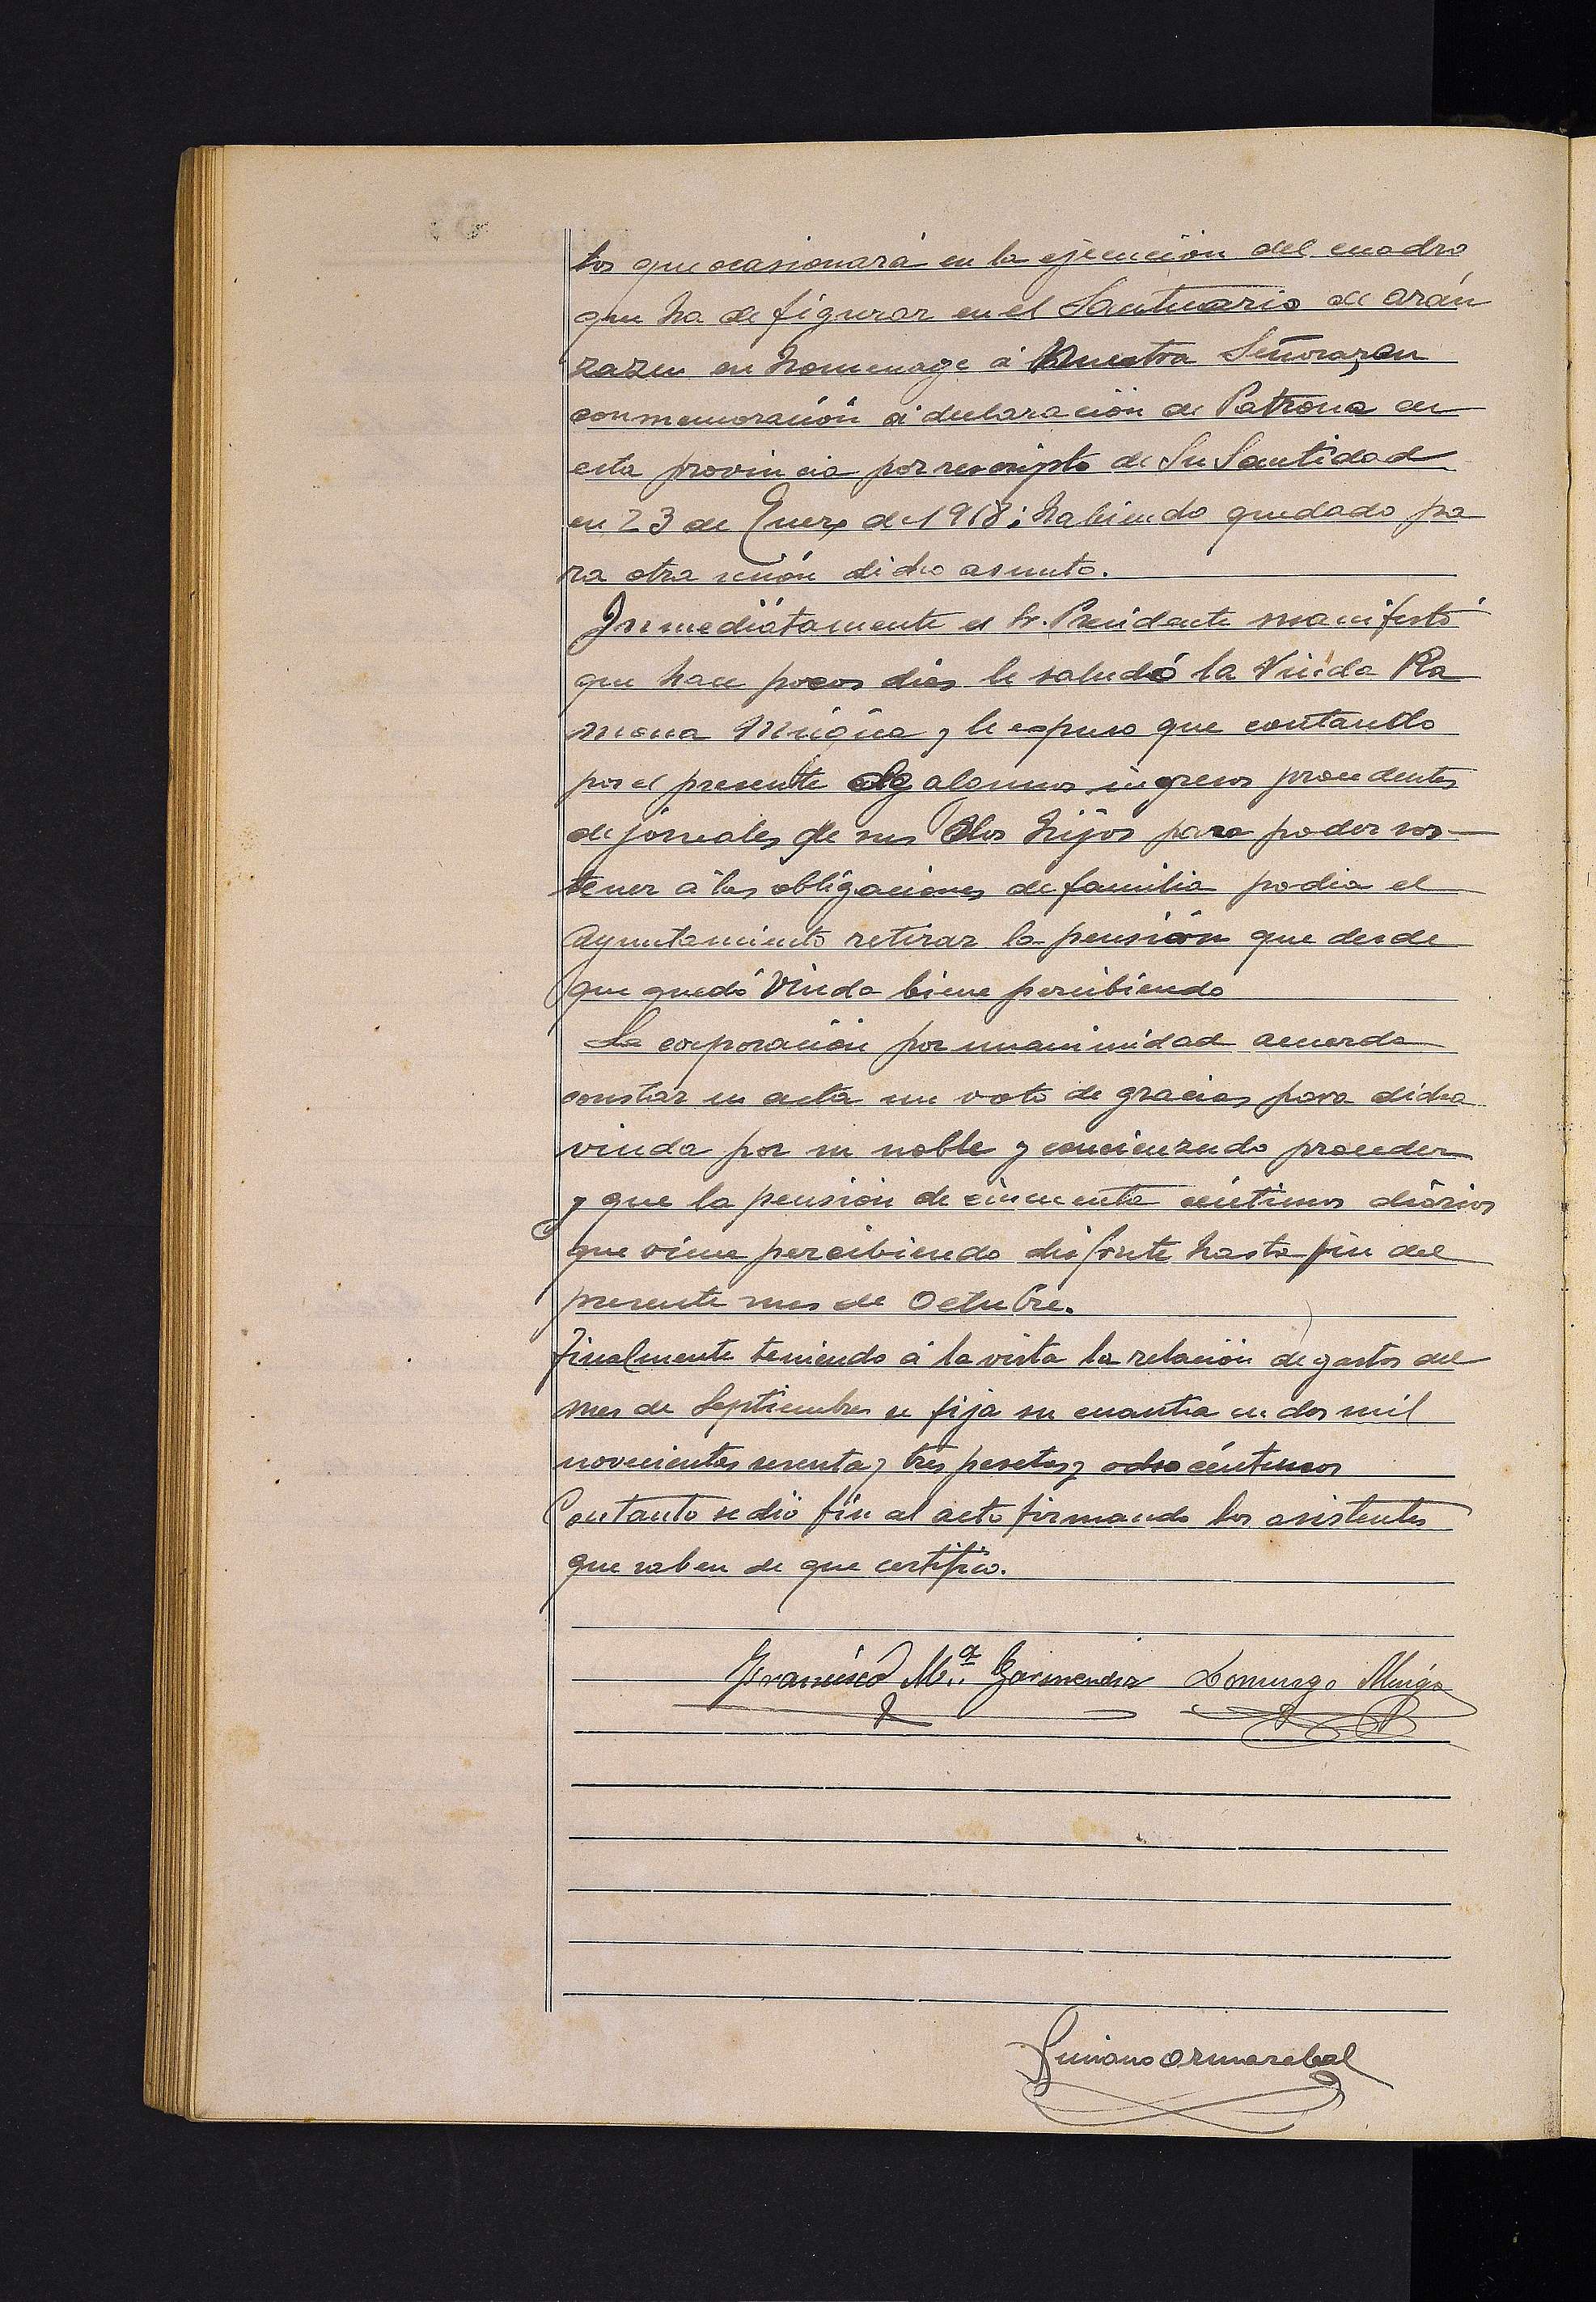 tos que ocasionará en la ejecución del cuadro
que ha de figurar en el Santuario de Arán
zazu en homenage á Nuestra Señora, en
conmemoración á declaración de Patrona en
esta provincia por rescripto de Su Santidad
en 23 de Enero de 1918; habiendo quedado pa
ra otra sesión dicho asunto.
Inmediatamente el Sr. Presidente manifestó
que hace pocos dias le saludó la Viuda Ra
mona Múgica y le espuso que contando
por el presente algunos ingresos procedentes
de jornales de sus dos hijos para poder sos-
tener á las obligaciones de familia podia el
Ayuntamiento retirar la pensión que desde
que quedó Viuda biene percibiendo
La corporación por unanimidad acuerda
constar en acta un voto de gracias para dicha
viuda por su noble y concienzudo proceder
y que la pensión de cincuenta céntimos diarios
que viene percibiendo disfrute hasta fin del
presente mes de Octubre.
Finalmente teniendo á la vista la relación de gastos del
mes de Septiembre se fija su cuantia en dos mil
novecientas sesenta y tres pesetas y ocho céntimos
Con tanto se dió fin al acto firmando los asistentes
que saben de que certifico.
Francisco M.ª Garmendia Domingo Múgica
Luciano Ormazabal